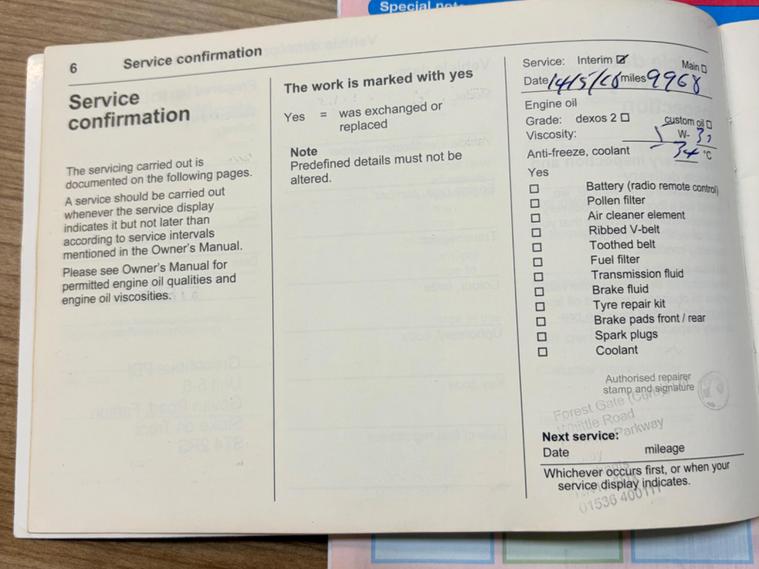 Special
6 Service confirmation
Service
confirmation
The servicing carried out is
documented on the following pages.
A service should be carried out
whenever the service display
indicates it but not later than
according to service intervals
mentioned in the Owner's Manual.
Please see Owner's Manual for
permitted engine oil qualities and
engine oil viscosities.
The work is marked with yes
Yes = was exchanged or
replaced
Note
Predefined details must not be
altered.
Service: Interim Main
Date 14/5/18 miles 9968
Engine oil
Grade: dexos 2 custom oil
Viscosity: 5 W-
Anti-freeze, coolant 34 °C
Yes
Battery (radio remote control)
Pollen filter
Air cleaner element
Ribbed V-belt
Toothed belt
Fuel filter
Transmission fluid
Brake fluid
Tyre repair kit
Brake pads front / rear
Spark plugs
Coolant
Authorised repairer
stamp and signature
Forest Gate
Road
Parkway
Next service:
Date mileage
Whichever occurs first, or when your
service display indicates.
01536 400111